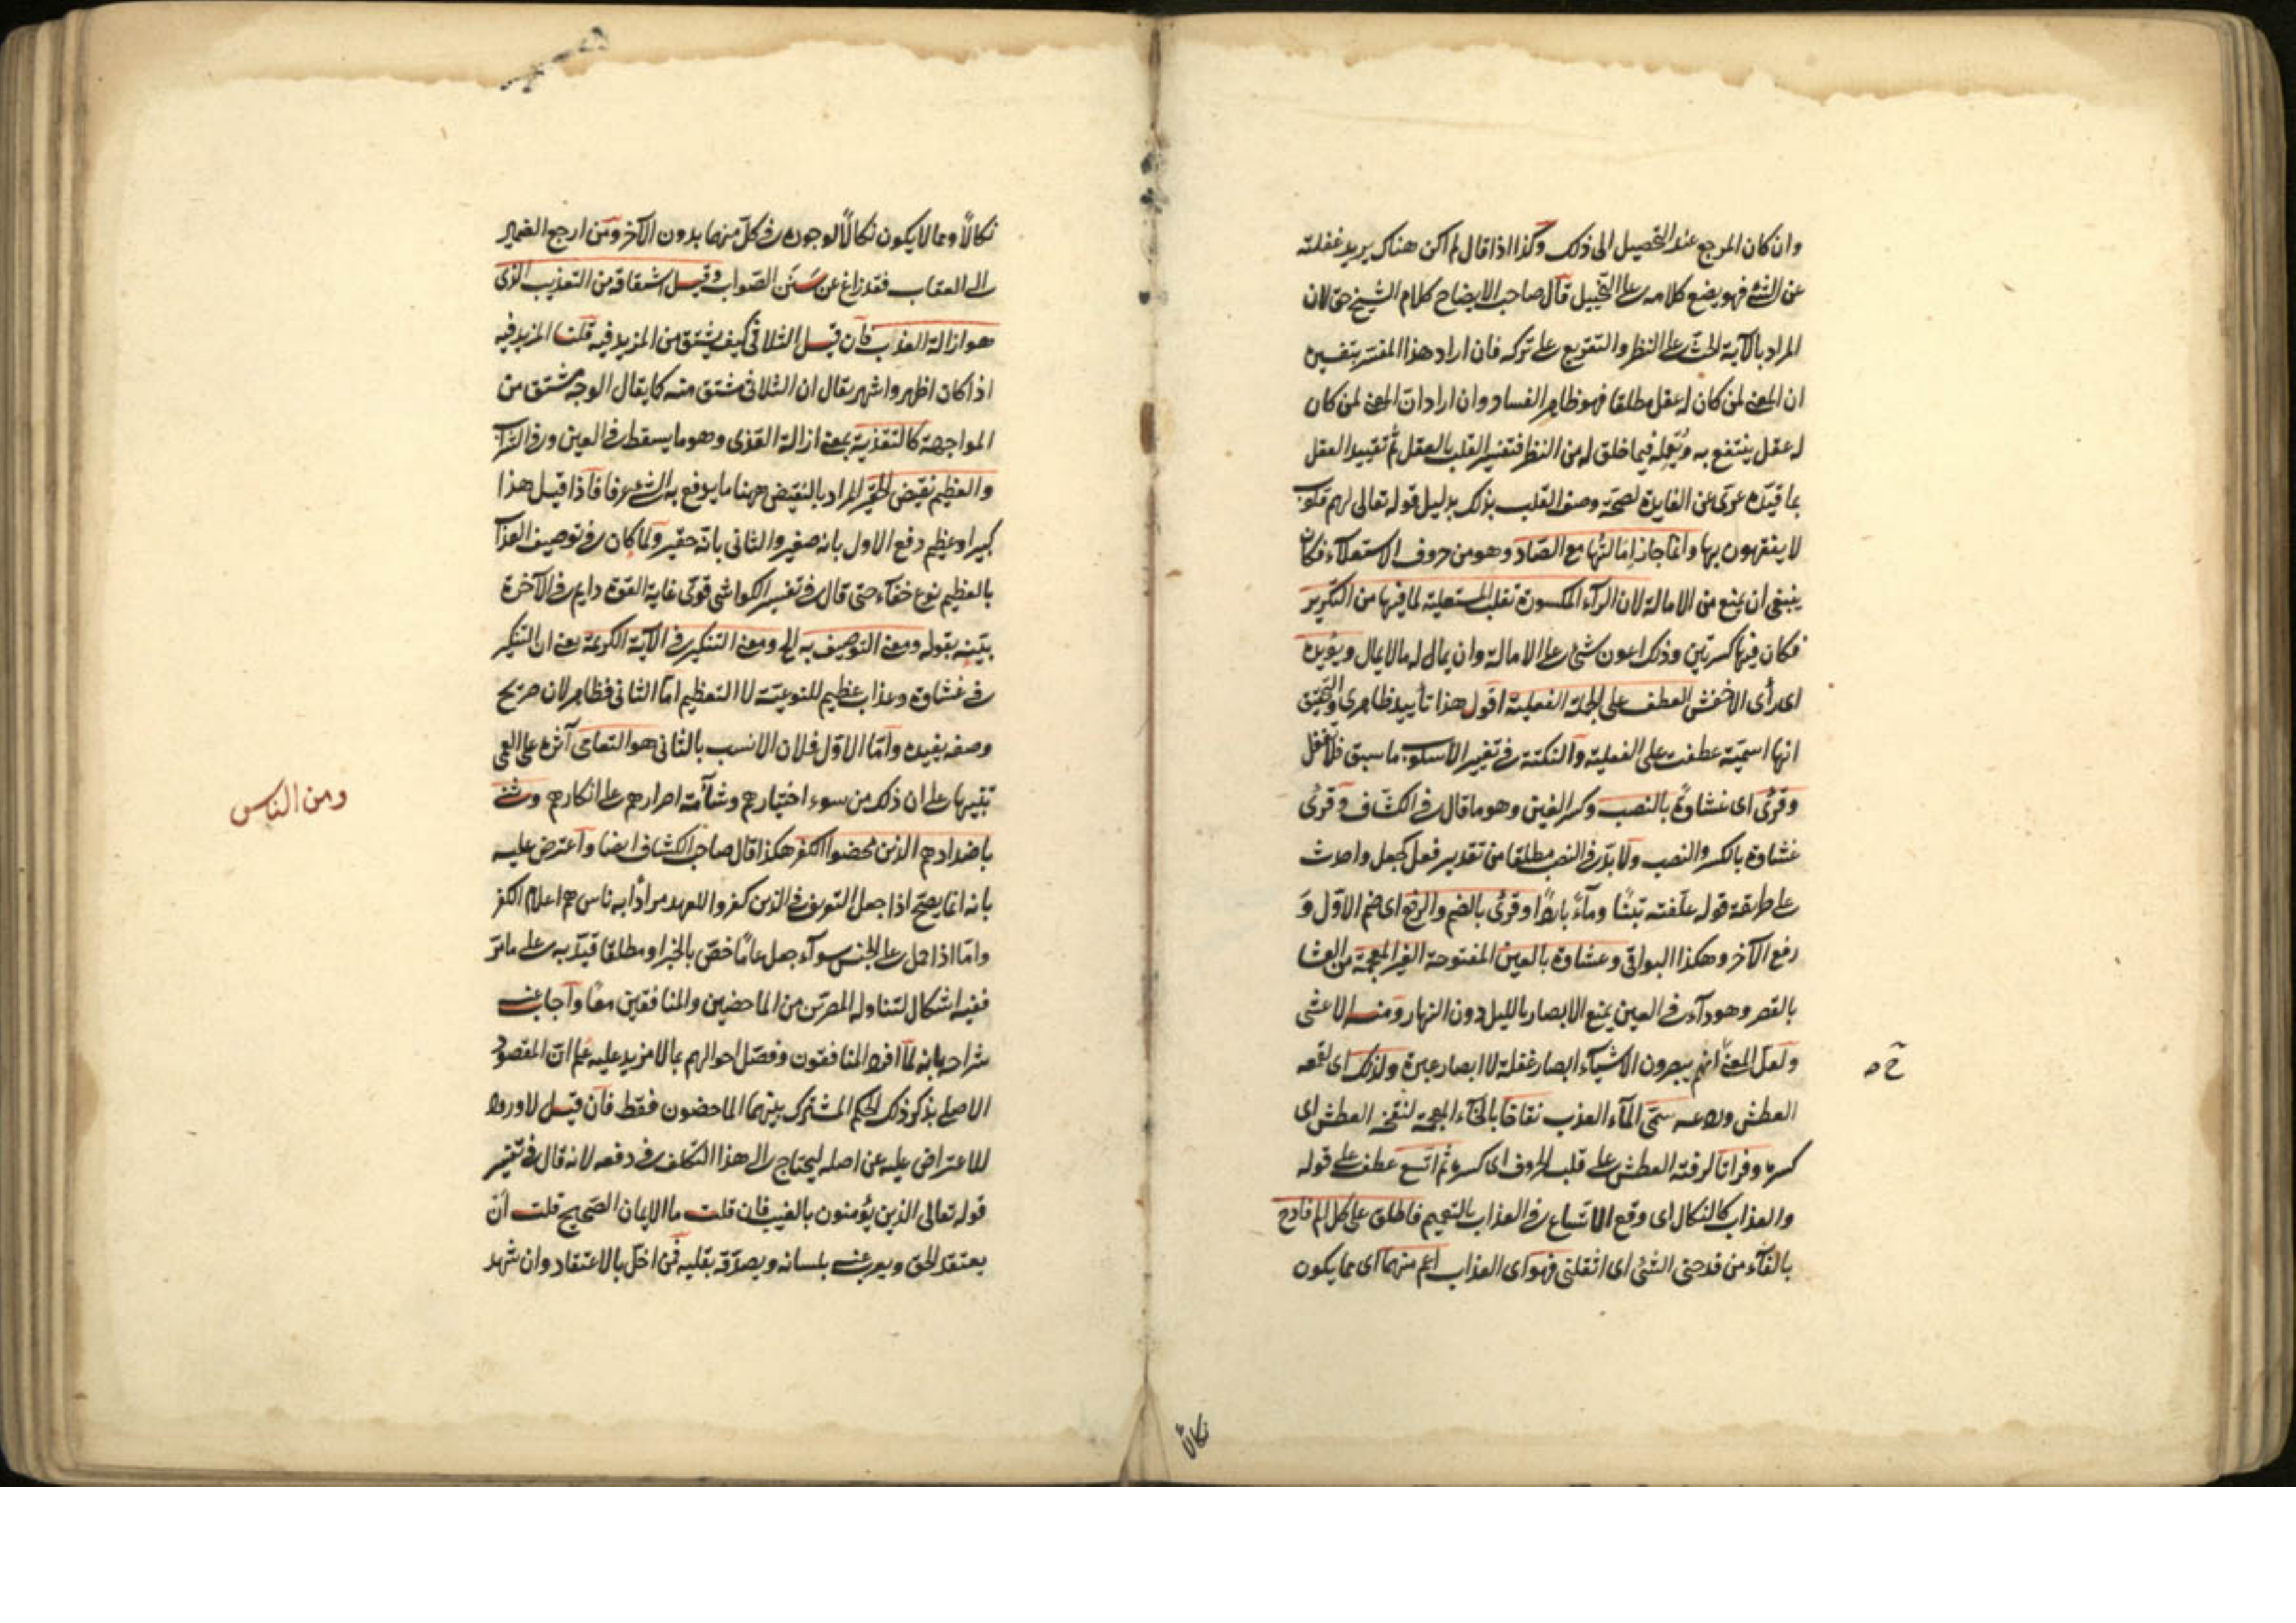 وان كان المرجع عند التحصيل الى ذلك وكذا اذا قال لم اكن هناك يريد غفلته
عن الشئ فهو يضع كلامه على التخييل قال صاحب الايضاح كلام الشيخ حق لان
المراد بالآية الحث على النظر والتقريع على تركه فان اراد هذا المفسر بتفسيره
ان المعنى لمن كان له عقل مطلقا فهو ظاهر الفساد وان اراد ان المعنى لمن كان
له عقل ينتفع به ويعمله فيما خلق له من النظر فتفسير القلب بالعقل ثم تقييد العقل
بما قيده عرى عن الفايدة لصحة وصف القلب بذلك بدليل قوله تعالى لهم قلوب
لا يفقهون بها وانما جاز امالتها مع الصاد وهو من حروف الاستعلاء فكان
ينبغي ان يمنع من الامالة لان الرآء المكسورة تغلب المستعلية لما فيها من التكرير
فكان فيها كسرتين وذلك اعون شئ على الامالة وان يمال له ما لا يمال ويؤيده
اى رأى الاخفش العطف على الجملة الفعلية اقول هذا تأييد ظاهري والتحقيق
انها اسمية عطفت على الفعلية والنكتة في تغيير الاسلوب ما سبق فلا تغفل
وقرئ اى غشاوة بالنصب وكسر الغين وهو ما قال في الكشاف وقرئ
غشاوة بالكسر والنصب ولا بد في النصب مطلقا من تقدير فعل كجعل واحدث
على طريقة قوله علفته تبنًا ومآءً باردًا وقرئ بالضم والرفع اى ضم الاول و
رفع الآخر وهكذا البواقي وعشاوة بالعين المفتوحة الغير المعجمة من العشا
بالقصر وهو دآء في العين يمنع الابصار بالليل دون النهار ومنه الاعشى
ولعل المعنى انهم يبصرون الاشيآء ابصار غفلة لا ابصار عبرة ولذلك اى لقمعه
العطش وردعه سمى المآء العذب نقاخا بالخآء المعجمة لنقخه العطش اى
كسره وفراتا لرفته العطش على قلب الحروف اى كسره ثم اتسع عطف على قوله
والعذاب كالنكال اى وقع الاتساع في العذاب بالتعميم فاطلق على كل الم فادح
بالفآء من فدحني الشئ اى اثقلني فهو اى العذاب اعم منهما اى مما يكون
نكالاً
نكالاً ومما لا يكون نكالاً لوجوده في كل منهما بدون الآخر ومن ارجع الضمير
الى العقاب فقد زاغ عن سنن الصواب وقيل اشتقاقه من التعذيب الذى
هو ازالة العذاب فان قيل الثلاثي كيف يشتق من المزيد فيه قلت المزيد فيه
اذا كان اظهر واشهر يقال ان الثلاثي مشتق منه كما يقال الوجه مشتق من
المواجهة كالتقذية بمعنى ازالة القذى وهو ما يسقط في العين وفي الشراب
والعظيم نقيض الحقير المراد بالنقيض ههنا ما يدفع به الشئ عرفا فاذا قيل هذا
كبير او عظيم دفع الاول بانه صغير والثاني بانه حقير ولما كان في توصيف العذاب
بالعظيم نوع خفآء حتى قال في تفسير الكواشي قوى غاية القوة دايم في الآخرة
بينه بقوله ومعنى التوصيف به الخ ومعنى التنكير في الآية الكريمة يعنى ان التنكير
في غشاوة وعذاب عظيم للنوعية لا التعظيم اما الثاني فظاهر لان صريح
وصفه يفيده واما الاول فلان الانسب بالثاني هو التعامى آثره على العمى
تنبيها على ان ذلك من سوء اختيارهم وشآمة اصرارهم على انكارهم وثنى
باضدادهم الذين محضوا الكفر هكذا قال صاحب الكشاف ايضا واعترض عليه
بانه انما يصح اذا جعل التعريف في الذين كفروا للعهد مرادًا به ناس هم اعلام الكفر
واما اذا حمل على الجنس سوآء جعل عامًا خص بالخبر او مطلقا قيد به على ما مر
ففيه اشكال لتناوله المصرين من الماحضين والمنافقين معًا واجاب عنه
شراحه بانه لما افرد المنافقون وفصل احوالهم بما لا مزيد عليه علم ان المقصود
الاصلى بذكر ذلك الحكم المشترك بينهما الماحضون فقط فان قيل لا ورود
للاعتراض عليه عن اصله ليحتاج الى هذا التكلف في دفعه لانه قال في تفسير
قوله تعالى الذين يؤمنون بالغيب فان قلت ما الايمان الصحيح قلت ان
يعتقد الحق ويعرب عنه بلسانه ويصدقه بقلبه فمن اخل بالاعتقاد وان شهد
ومن الناس